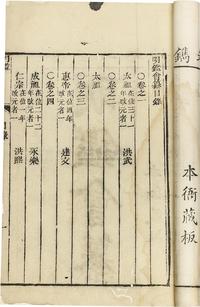 鐫
本衙藏板
明鑑會纂目錄
〇卷之一
太祖 在位三十一年改元者一 洪武
〇卷之二
太祖
〇卷之三
惠帝 在位四年改元者一 建文
〇卷之四
成祖 在位二十二年改元者一 永樂
仁宗 在位一年改元者一 洪熙
目錄